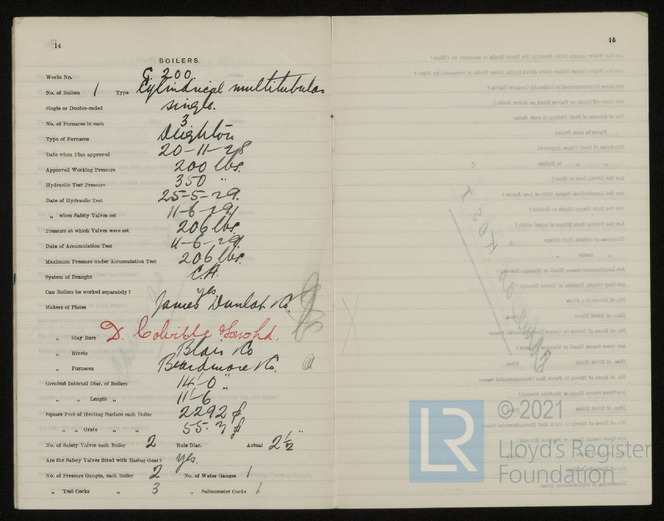 14
BOILERS.
Works No. G. 200.
No. of Boilers 1 Type Cylindrical multitubular
Single or Double-ended single.
No. of Furnaces in each 3
Type of Furnaces Deighton
Date when Plan approved 20-11-28
Approved Working Pressure 200 lbs.
Hydraulic Test Pressure 350 "
Date of Hydraulic Test 25-5-29.
" when Safety Valves set 11-6-29.
Pressure at which Valves were set 206 lbs.
Date of Accumulation Test 11-6-29.
Maximum Pressure under Accumulation Test 206 lbs.
System of Draught
Can Boilers be worked separately? yes
Makers of Plates James Dunlop & Co.
" Stay Bars D. Colville & Sons Ld.
" Rivets Blair & Co
" Furnaces Beardmore & Co.
Greatest Internal Diam. of Boilers 14'-0"
" " Length " 11'-6
Square Feet of Heating Surface each Boiler 2292
" " Grate " " 55.3
No. of Safety Valves each Boiler 2 Rule Diam. Actual 2½"
Are the Safety Valves fitted with Easing Gear? yes.
No. of Pressure Gauges, each Boiler 2 No. of Water Gauges 1
" Test Cocks " 3 " Salinometer Cocks 1
15
© 2021
LR
Lloyd's Register
Foundation